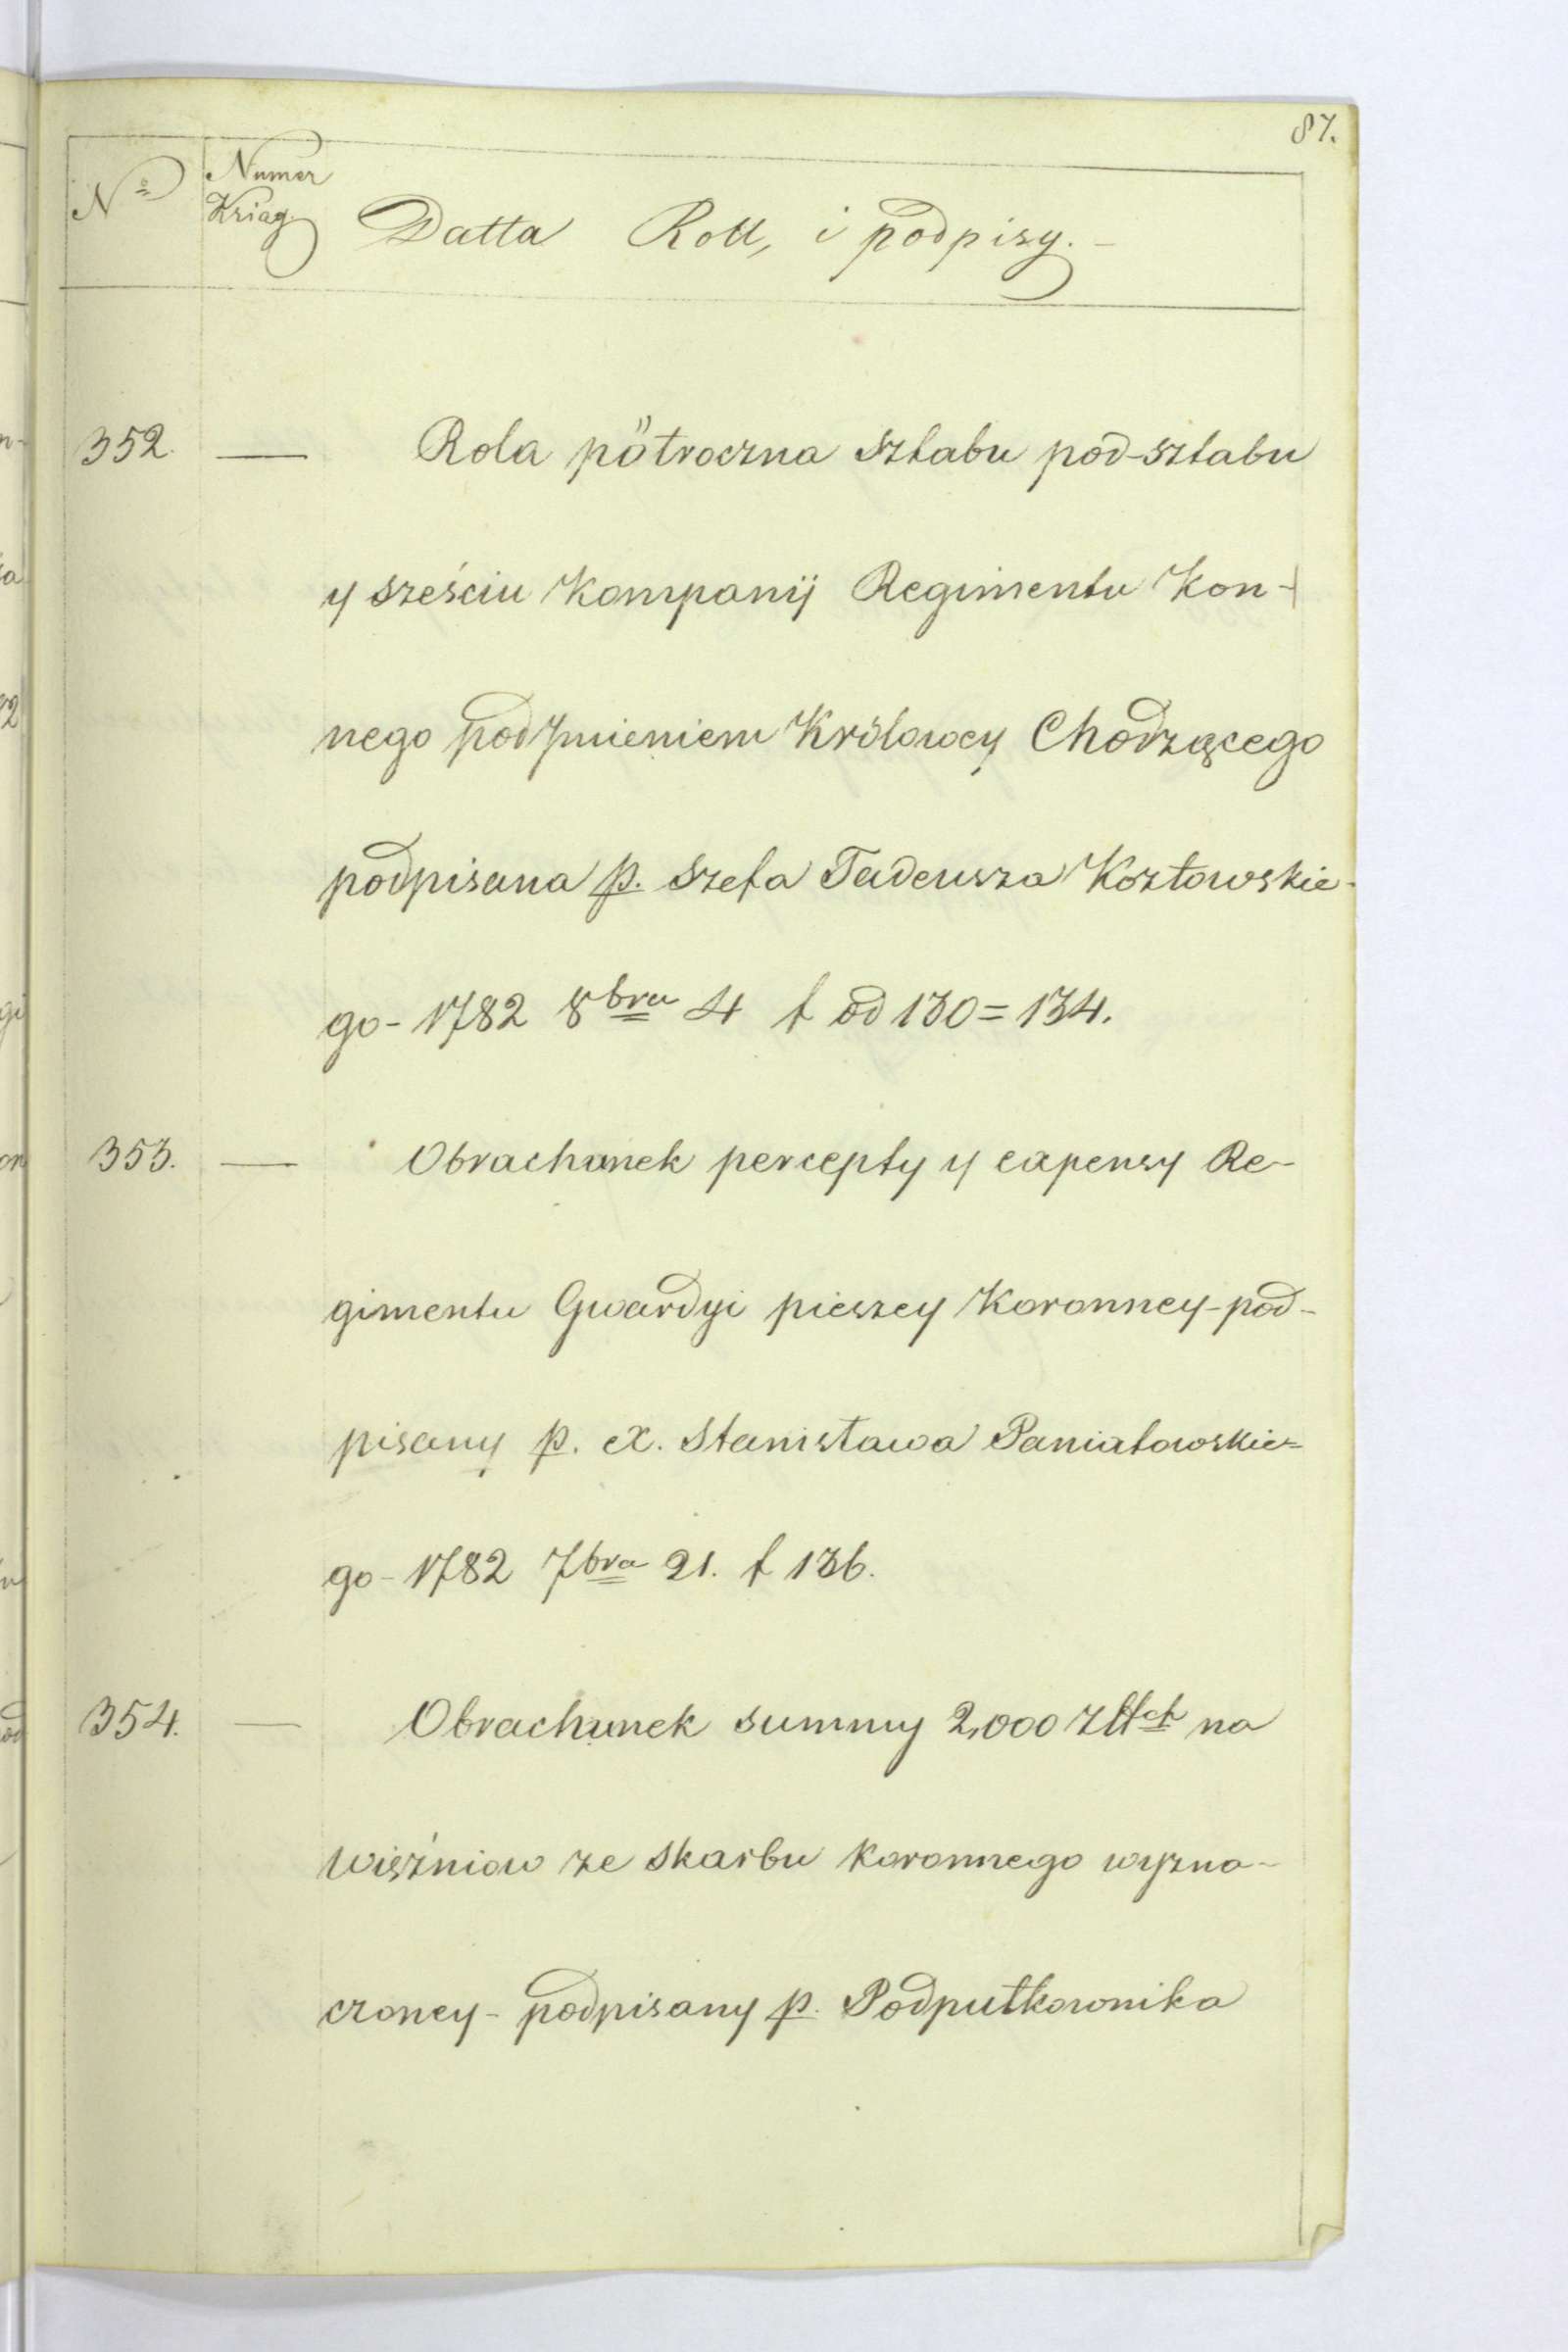 87.
N° Numer Ksiąg Datta Roll, i podpisy. -
352. — Rola półroczna sztabu pod-sztabu
y sześciu Kompanij Regimentu Kon-
nego pod Jmieniem Królowey Chodzącego
podpisana p. Szefa Tadeusza Kozłowskie-
go - 1782 8bra 4 f od 130 = 134.
353. — Obrachunek percepty y expensy Re-
gimentu Gwardyi pieszey Koronney - pod-
pisany p. X. Stanisława Poniatowskie=
go - 1782 7bra 21. f 136.
354. — Obrachunek summy 2,000 złłch na
więźniow ze skarbu koronnego wyzna-
czoney - podpisany p. Podpułkownika